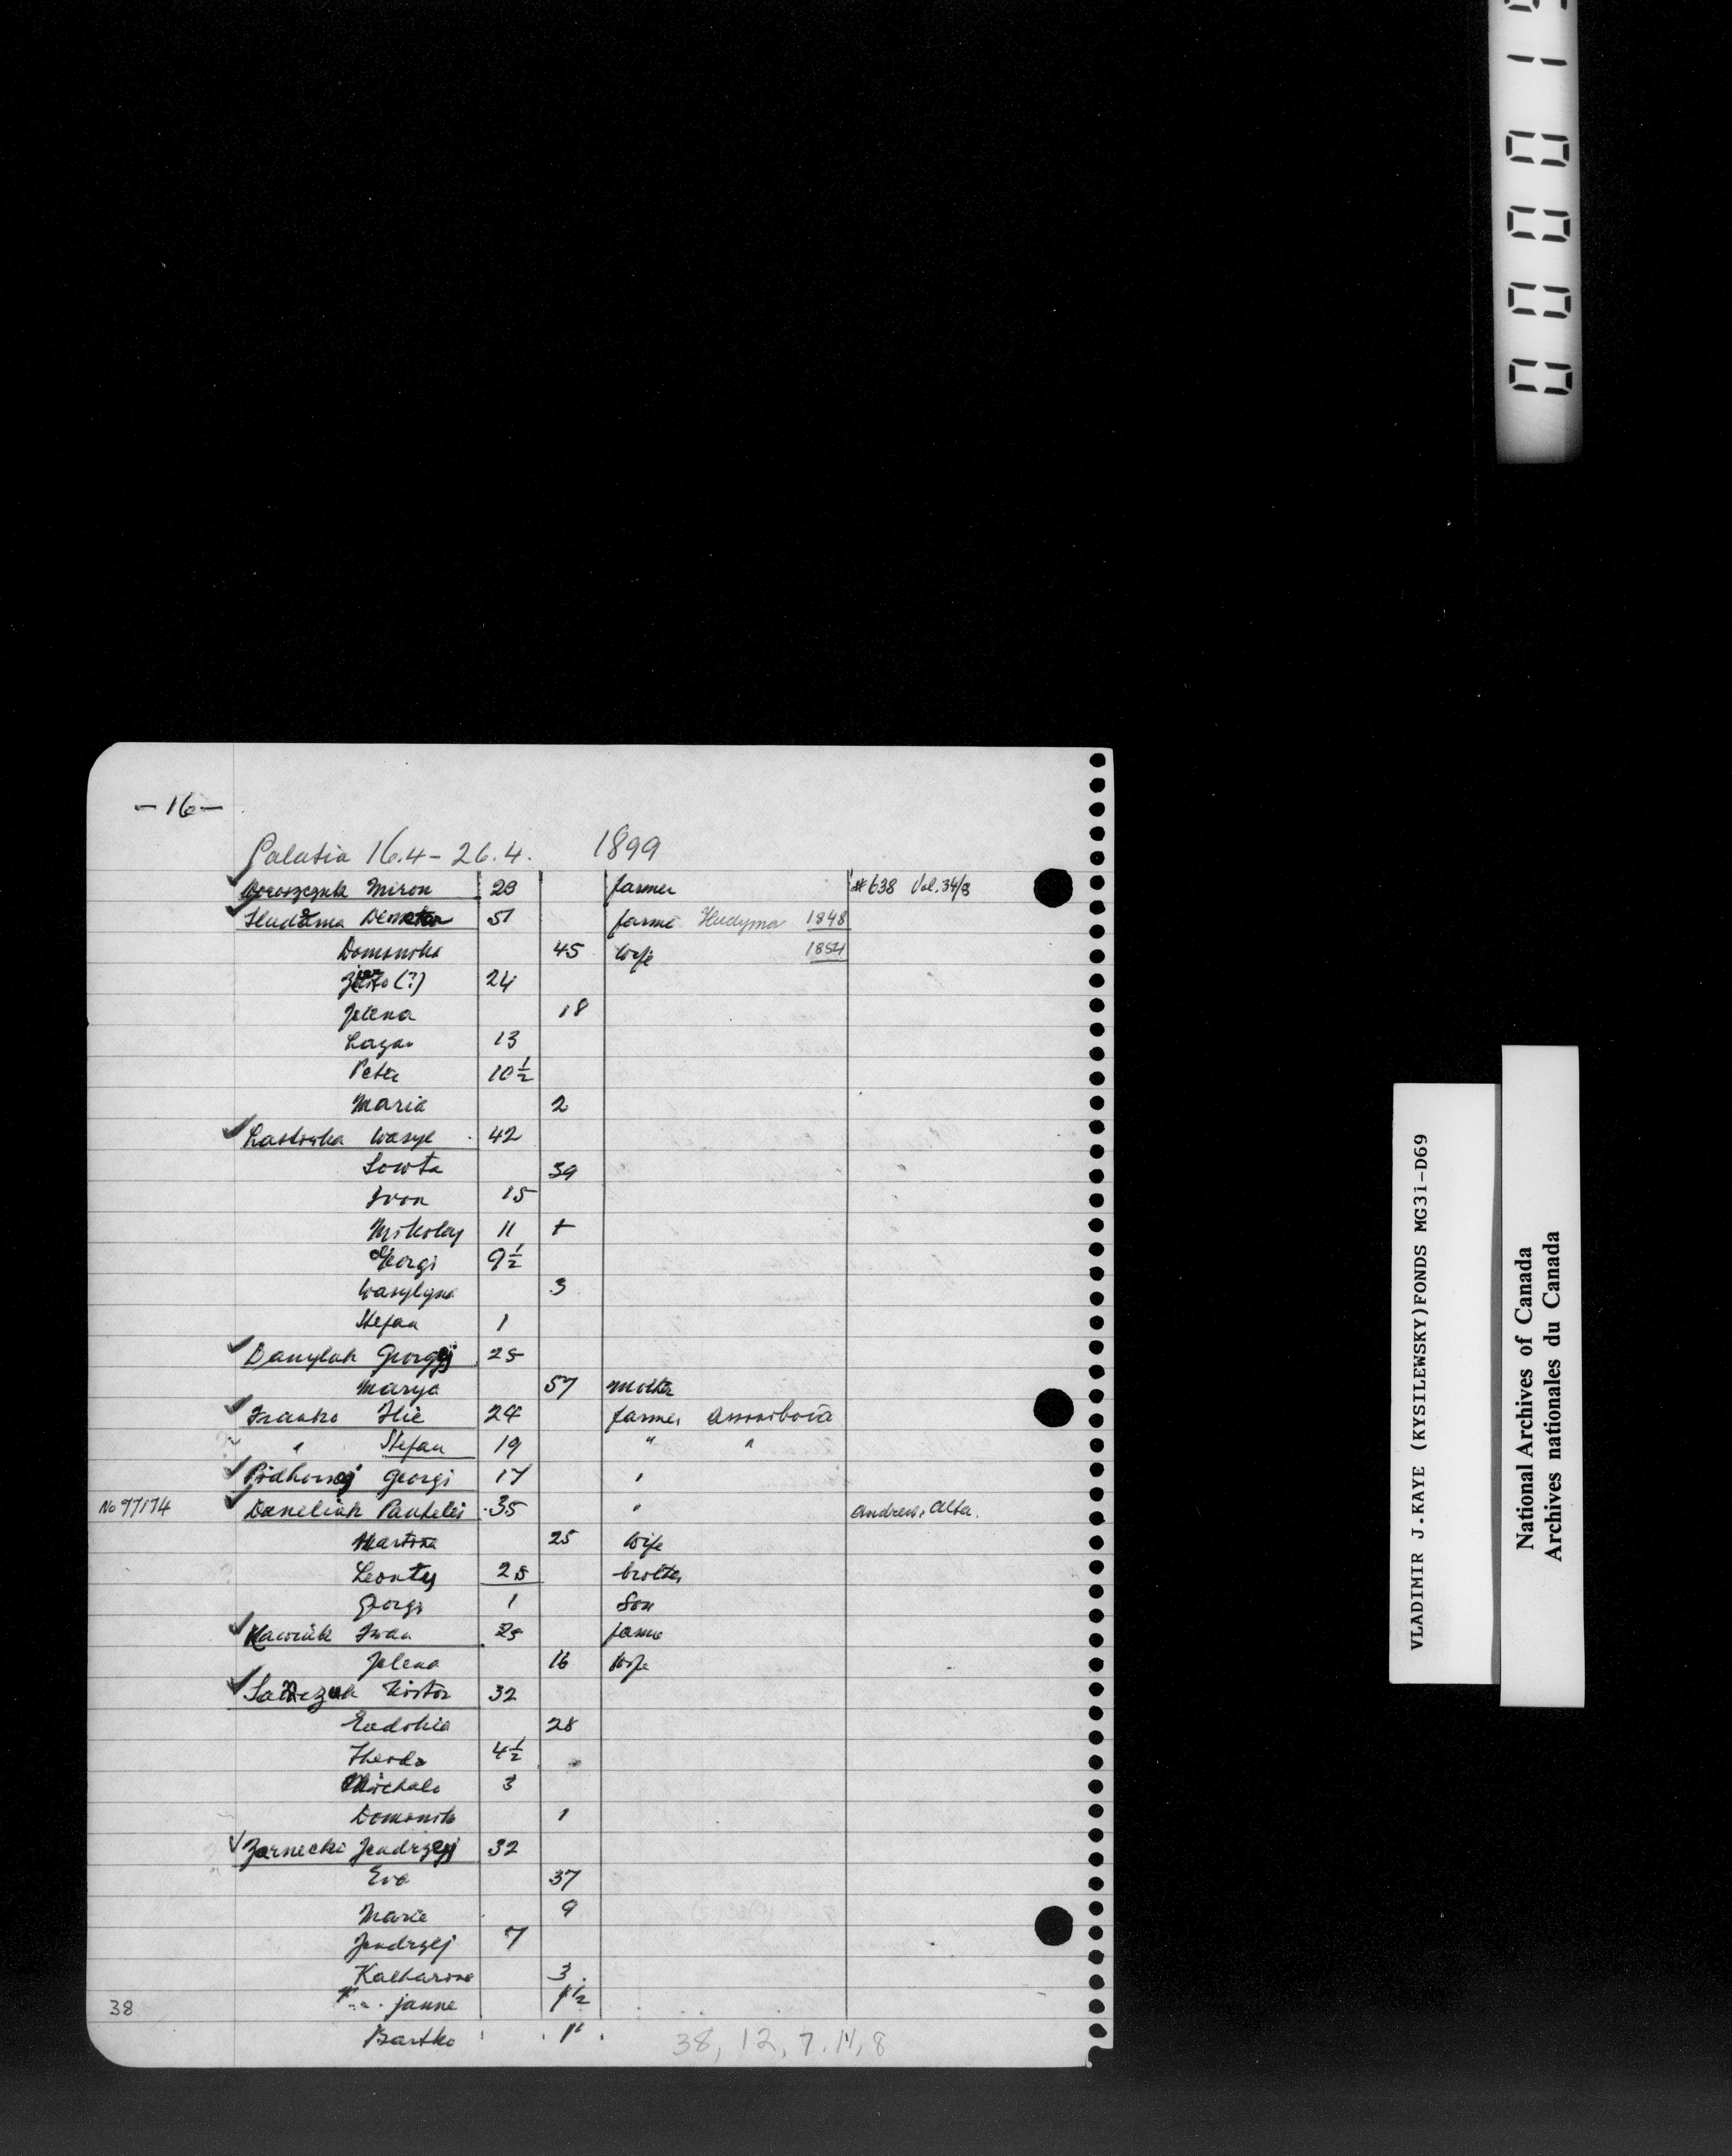 -16-
Palatia 16.4 - 26.4. 1899
Doroszczuk Miron 28 farmer #638 Vol. 34/8
Hudema Demeter 51 farmer Hudyma 1848
Domonika 45 wife 1854
(?) 24
Jelena 18
Lazar 13
Peter 10½
Maria 2
Lastiwka Wasyl 42
Sowta 39
Ivon 15
Mikolay 11 +
Georgi 9½
Wasylyna 3
Stefan 1
Danylak Georgij 25
Marya 57 mother
Franko Ilie 24 farmer Assiniboia
" Stefan 19 " "
Pidhornej Georgi 17 "
No 97174 Daneliak Pantelei 35 " Andrew, Alta.
25 wife
Leonty 28 brother
Georgi 1 son
Hawriuk Iwan 25 farmer
Jelena 16 wife
32
Eudokia 28
4½
Michalo 3
Domonik 1
Zarnecki Jendrzej 32
Eva 37
Marie 9
Jendrzej 7
Katharine 3
janne 1½
Bartko 1"
38
38, 12, 7, 14, 8
0 0 0 0 1
VLADIMIR J.KAYE (KYSILEWSKY)FONDS MG31-D69
National Archives of Canada
Archives nationales du Canada